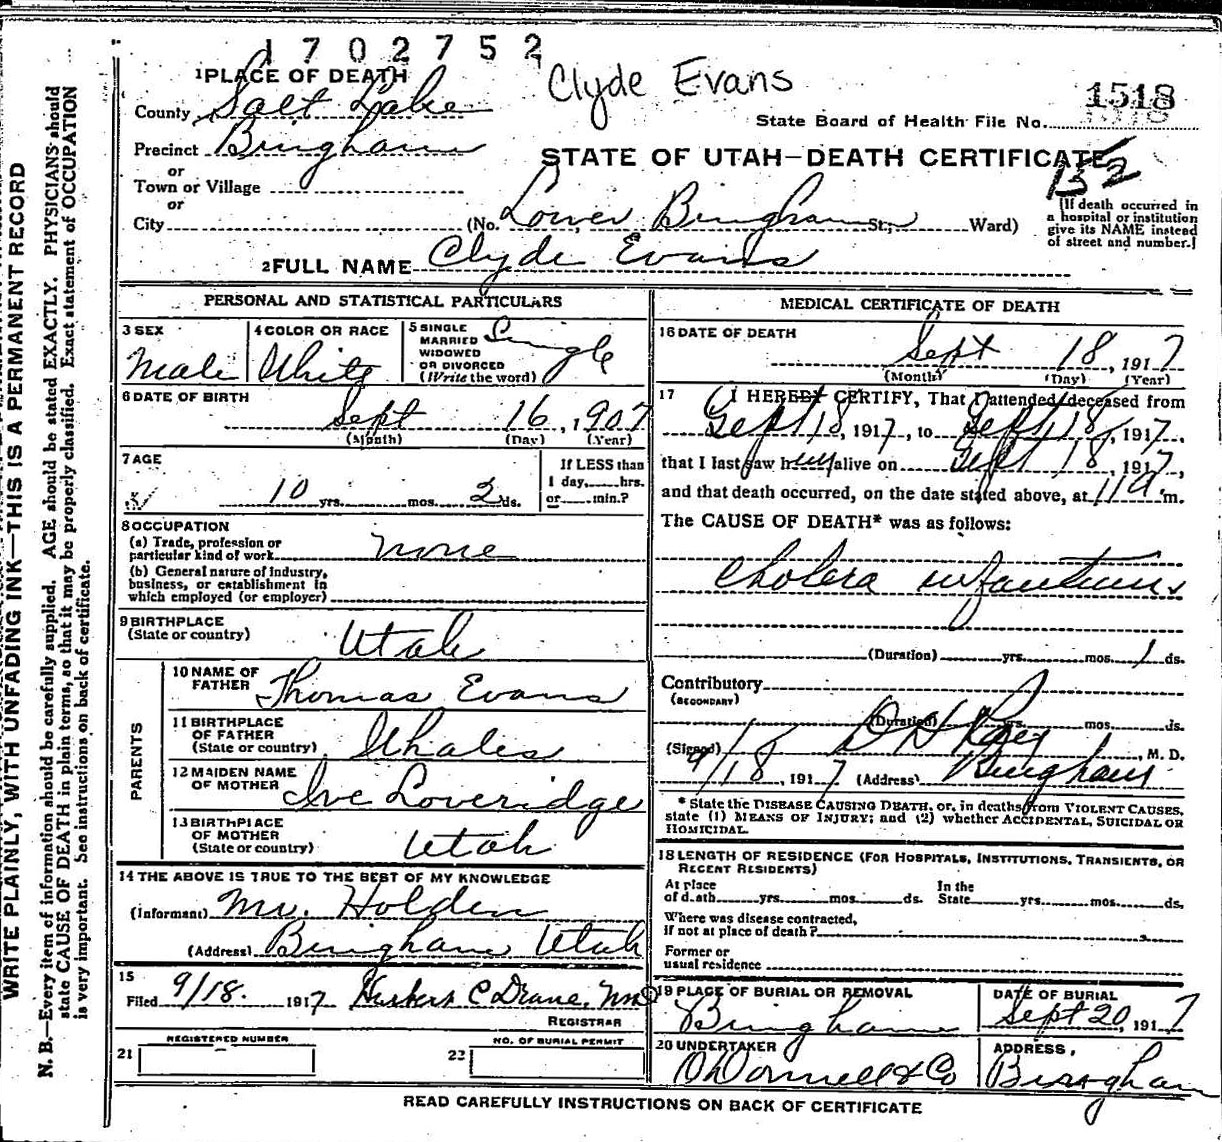 1702752
Clyde Evans
1 PLACE OF DEATH
1518
County Salt Lake
State Board of Health File No.
Precinct Bingham
STATE OF UTAH—DEATH CERTIFICATE
152
or
Town or Village
or
City (No. Lower Bingham St.; Ward)
[If death occurred in
a hospital or institution
give its NAME instead
of street and number.]
2 FULL NAME Clyde Evans
PERSONAL AND STATISTICAL PARTICULARS
3 SEX Male
4 COLOR OR RACE White
5 SINGLE
MARRIED
WIDOWED
OR DIVORCED
(Write the word) Single
6 DATE OF BIRTH
Sept 16, 1907
(Month) (Day) (Year)
7 AGE
10 yrs. mos. 2 ds.
If LESS than
1 day, hrs.
or min.?
8 OCCUPATION
(a) Trade, profession or
particular kind of work none
(b) General nature of industry,
business, or establishment in
which employed (or employer)
9 BIRTHPLACE
(State or country) Utah
PARENTS
10 NAME OF
FATHER Thomas Evans
11 BIRTHPLACE
OF FATHER
(State or country) Whales
12 MAIDEN NAME
OF MOTHER Ive Loveridge
13 BIRTHPLACE
OF MOTHER
(State or country) Utah
14 THE ABOVE IS TRUE TO THE BEST OF MY KNOWLEDGE
(Informant) Mr. Holden
(Address) Bingham Utah
15
Filed 9/18. 1917
REGISTRAR
21 REGISTERED NUMBER
22 NO. OF BURIAL PERMIT
MEDICAL CERTIFICATE OF DEATH
16 DATE OF DEATH
Sept 18, 1917
(Month) (Day) (Year)
17 I HEREBY CERTIFY, That I attended deceased from
Sept 18, 1917, to Sept 18, 1917,
that I last saw him alive on Sept 18, 1917,
and that death occurred, on the date stated above, at m.
The CAUSE OF DEATH* was as follows:
Cholera infantum
(Duration) yrs. mos. 1 ds.
Contributory
(SECONDARY)
(Duration) yrs. mos. ds.
(Signed) M. D.
9/18, 1917 (Address) Bingham
* State the DISEASE CAUSING DEATH, or, in deaths from VIOLENT CAUSES,
state (1) MEANS OF INJURY; and (2) whether ACCIDENTAL, SUICIDAL OR
HOMICIDAL.
18 LENGTH OF RESIDENCE (FOR HOSPITALS, INSTITUTIONS, TRANSIENTS, OR
RECENT RESIDENTS)
At place
of death yrs. mos. ds.
In the
State yrs. mos. ds.
Where was disease contracted,
if not at place of death?
Former or
usual residence
19 PLACE OF BURIAL OR REMOVAL
Bingham
DATE OF BURIAL
Sept 20, 1917
20 UNDERTAKER
O'Donnell & Co
ADDRESS,
Bingham
READ CAREFULLY INSTRUCTIONS ON BACK OF CERTIFICATE
WRITE PLAINLY, WITH UNFADING INK—THIS IS A PERMANENT RECORD
N. B.—Every item of information should be carefully supplied. AGE should be stated EXACTLY. PHYSICIANS should
state CAUSE OF DEATH in plain terms, so that it may be properly classified. Exact statement of OCCUPATION
is very important. See instructions on back of certificate.